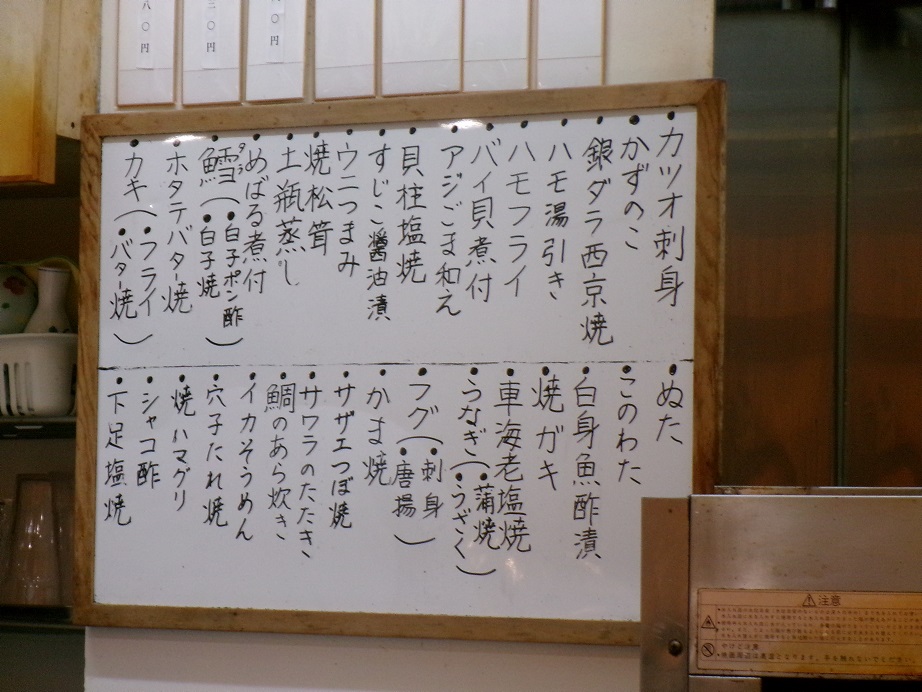 八〇円
三〇円
〇円
・カツオ刺身
・かずのこ
・銀ダラ西京焼
・ハモ湯引き
・ハモフライ
・バイ貝煮付
・アジごま和え
・貝柱塩焼
・すじこ醤油漬
・ウニつまみ
・焼松茸
・土瓶蒸し
・めばる煮付
・鱈(タラ)(・白子ポン酢
・白子焼)
・ホタテバター焼
・カキ(・フライ
・バター焼)
・ぬた
・このわた
・白身魚酢漬
・焼ガキ
・車海老塩焼
・うなぎ(・蒲焼
・うざく)
・フグ(・刺身
・唐揚)
・かま焼
・サザエつぼ焼
・サワラのたたき
・鯛のあら炊き
・イカそうめん
・穴子たれ焼
・焼ハマグリ
・シャコ酢
・下足塩焼
注意
やけど注意